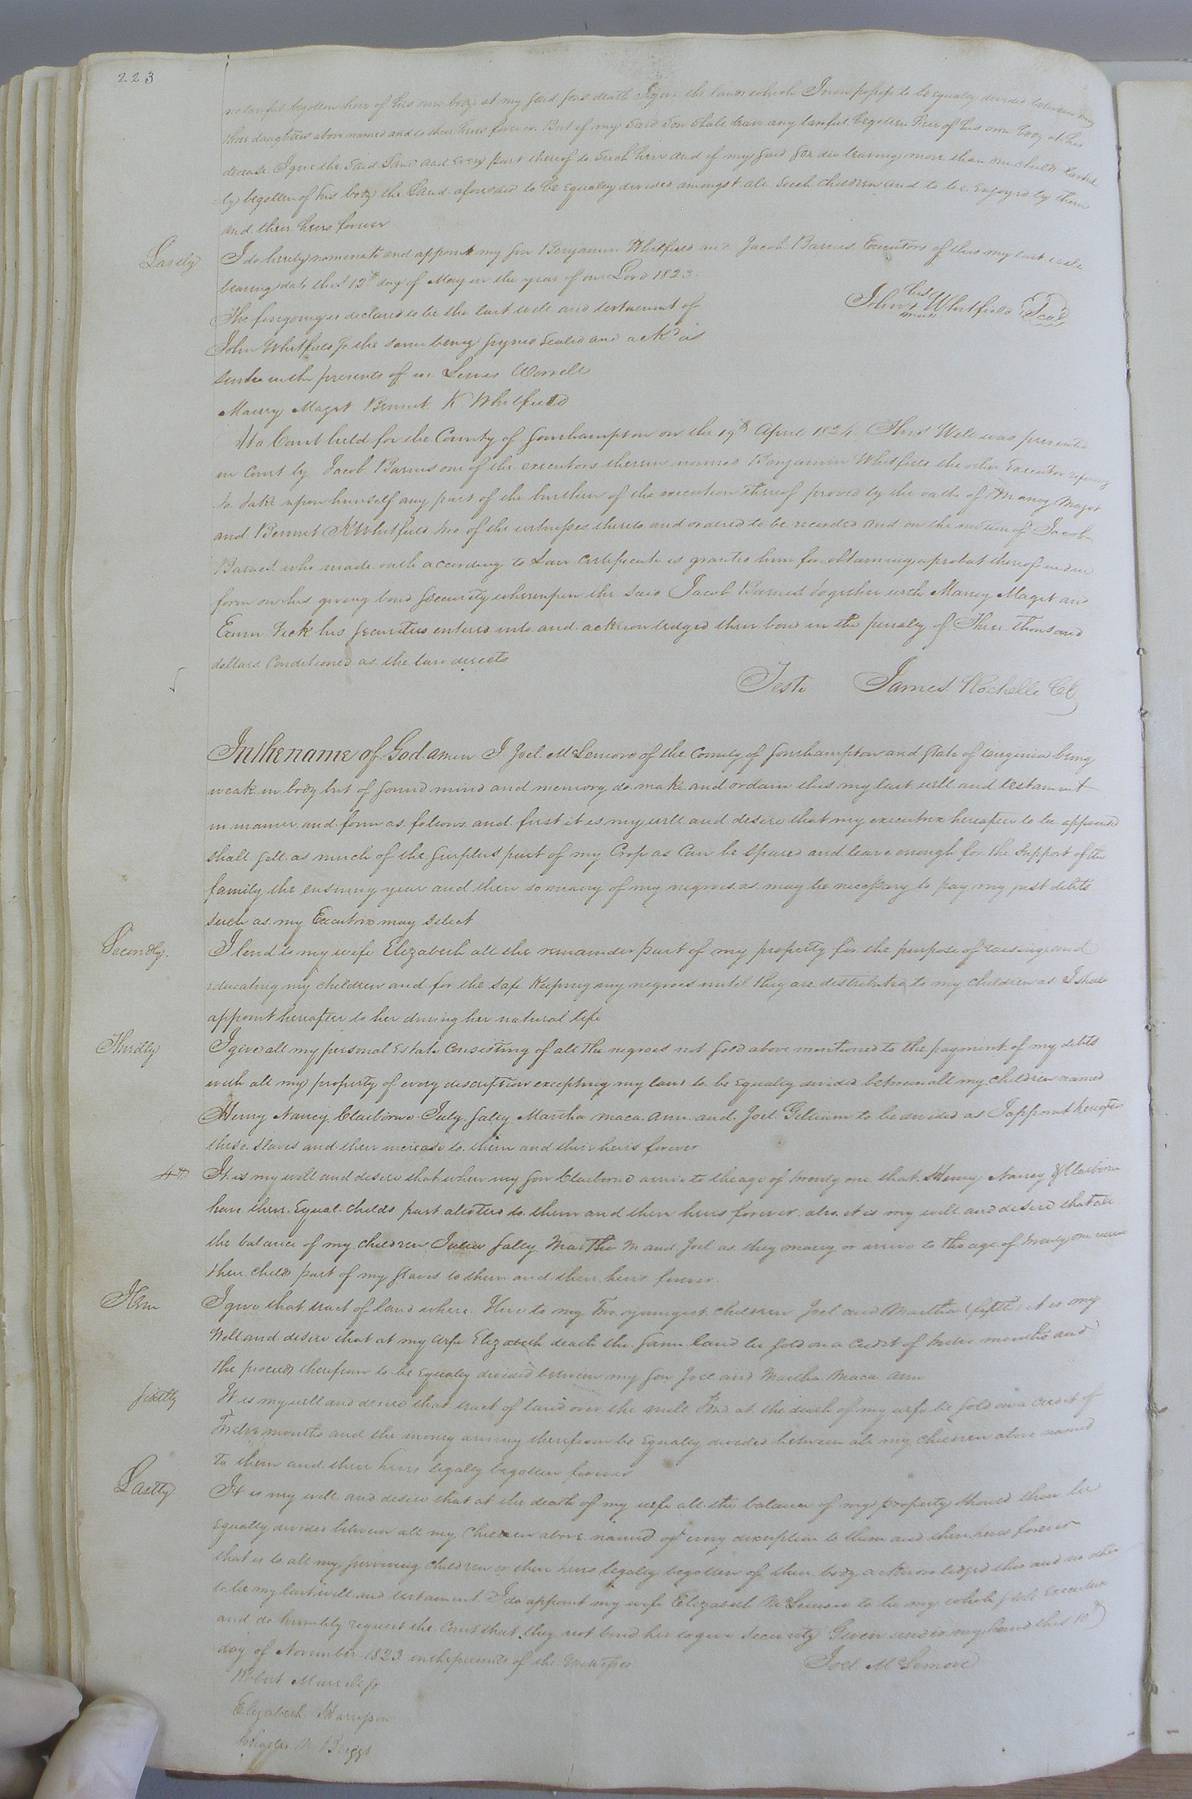 223
no lawful begotten heir of his own body at my said sons death I give the land which I now possess to be equally divided between my
three daughters above named and to their heirs forever But if my said Son shall leave any lawful begotten Heir of his own body at his
decease I give the said Land and every part thereof to such heir and if my said son die leaving more than one child lawful
ly begotten of his body the Land aforesaid to be equally divided amongst all such children and to be enjoyed by them
and their heirs forever
Lastly I do hereby nominate and appoint my son Benjamin Whitfield and Jacob Barnes Executors of this my last will
bearing date this 12th day of May in the year of our Lord 1823
The foregoing is declared to be the last will and testament of
John his mark Whitfield Seal
John Whitfield Sr the same being signed sealed and ackd as
such in the presents of us Lewis Worrell
Maury Maget Bennet K Whitfield
At a Court held for the County of Southampton on the 19th April 1824 This Will was presented
in Court by Jacob Barnes one of the executors therein named Benjamin Whitfield the other Executor refusing
to take upon himself any part of the burthen of the execution thereof proved by the oaths of Maury Maget
and Bennet K Whitfield two of the witnesses thereto and ordered to be recorded and on the motion of Jacob
Barnes who made oath according to Law Certificate is granted him for obtaining a probat thereof in due
form on his giving bond & security whereupon the said Jacob Barnes together with Maury Maget and
Exum Fick his securities entered into and acknowledged their bond in the penalty of Three thousand
dollars Conditioned as the law directs
Teste James Rochelle CC
In the name of God amen I Joel McLemore of the County of Southampton and State of Virginia being
weak in body but of sound mind and memory do make and ordain this my last will and testament
in manner and form as follows and first it is my will and desire that my executrix hereafter to be appointed
shall sell as much of the surplus part of my Crop as Can be spared and leave enough for the support of the
family the ensuing year and then so many of my negroes as may be necessary to pay my just debts
such as my Executrix may select
Secondly I lend to my wife Elizabeth all the remainder part of my property for the purpose of raising and
educating my children and for the safe keeping my negroes until they are distributed to my children as I shall
appoint hereafter to her during her natural life
Thirdly I give all my personal Estate Consisting of all the negroes not sold above mentioned to the payment of my debts
with all my property of every description excepting my land to be Equally divided between all my children named
Henry Nancy Claiborne July Sally Martha maca ann and Joel to be divided as I appoint hereafter
these slaves and their increase to them and their heirs forever
4th It is my will and desire that when my son Claiborne arrive to the age of twenty one that Henry Nancy & Claiborne
have their Equal Childs part allotted to them and their heirs forever also it is my will and desire that all
the balance of my children Sally Martha M and Joel as they marry or arrive to the age of twenty one receive
their childs part of my slaves to them and their heirs forever
Item I give that tract of land where I live to my two youngest children Joel and Martha (fifth) it is my
Will and desire that at my wife Elizabeth death the same land be sold on a credit of twelve months and
the proceeds therefrom to be Equally divided between my son Joel and Martha Maca ann
Sixthly It is my will and desire that tract of land over the mill at the death of my wife be sold on a credit of
Twelve months and the money arising therefrom be Equally divided between all my children above named
to them and their heirs legally begotten forever
Lastly It is my will and desire that at the death of my wife all the balance of my property should then be
equally divided between all my Children above named of every description to them and their heirs forever
that is to all my surviving children or their heirs legally begotten of their body acknowledged this and no other
to be my last will and testament I do appoint my wife Elizabeth McLemore to be my whole & sole Executrix
and do humbly request the Court that they not bind her to give security Given under my hand this 10th
day of November 1823 in the presents of the witnesses
Joel McLemore
Elizabeth Harrison
Charles Briggs